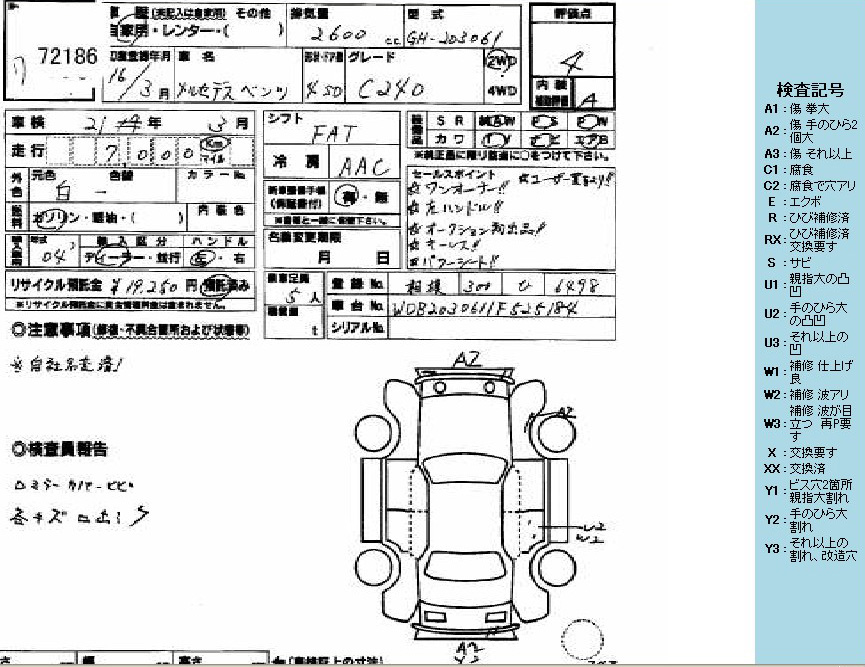 歴 (未記入は自家用) その他
自家用・レンター・( )
72186
排気量
2600 cc
型式
GH-203061
評価点
4
内装
補助評価 A
初度登録年月
16/3月
車名
メルセデスベンツ
形状・ドア数
4SD
グレード
C240
2WD
4WD
車検 21年 3月
走行 7000 Km マイル
外色
元色 白
色替 ー
カラーNo.
燃料
ガソリン・軽油・( )
内装色
年式 04
輸入区分
ディーラー・並行
ハンドル
左・右
リサイクル預託金 ¥19,250円 預託済み
※リサイクル預託金に資金管理料金は含まれません。
シフト
FAT
冷房
AAC
新車整備手帳
(保証書付)
有・無
※書類と一緒に保管下さい。
名義変更期限
月 日
乗車定員
5人
積載量
t
装備品
SR AW PS PW
カワ TV ナビ エアB
※純正品に限り該当に○をつけて下さい。
セールスポイント
☆ワンオーナー!! ☆ユーザー買取り!!
☆左ハンドル!!
☆オークション初出品!!
☆キーレス!!
☆パワーシート!!
登録No. 相模 300 ひ 6498
車台No. WDB2030611F525184
シリアルNo.
◎注意事項(修復・不具合箇所および状態等)
※自社名変済!
◎検査員報告
ロミラーカバーヒビ
各キズ凹出:S
A2
A2
U2
W2
A2
Y2
検査記号
A1:傷 拳大
A2:傷 手のひら2個大
A3:傷 それ以上
C1:腐食
C2:腐食で穴アリ
E:エクボ
R:ひび補修済
RX:ひび補修済 交換要す
S:サビ
U1:親指大の凸凹
U2:手のひら大の凸凹
U3:それ以上の凹
W1:補修 仕上げ良
W2:補修 波アリ
W3:補修 波が目立つ 再P要す
X:交換要す
XX:交換済
Y1:ビス穴2箇所 親指大割れ
Y2:手のひら大割れ
Y3:それ以上の割れ、改造穴